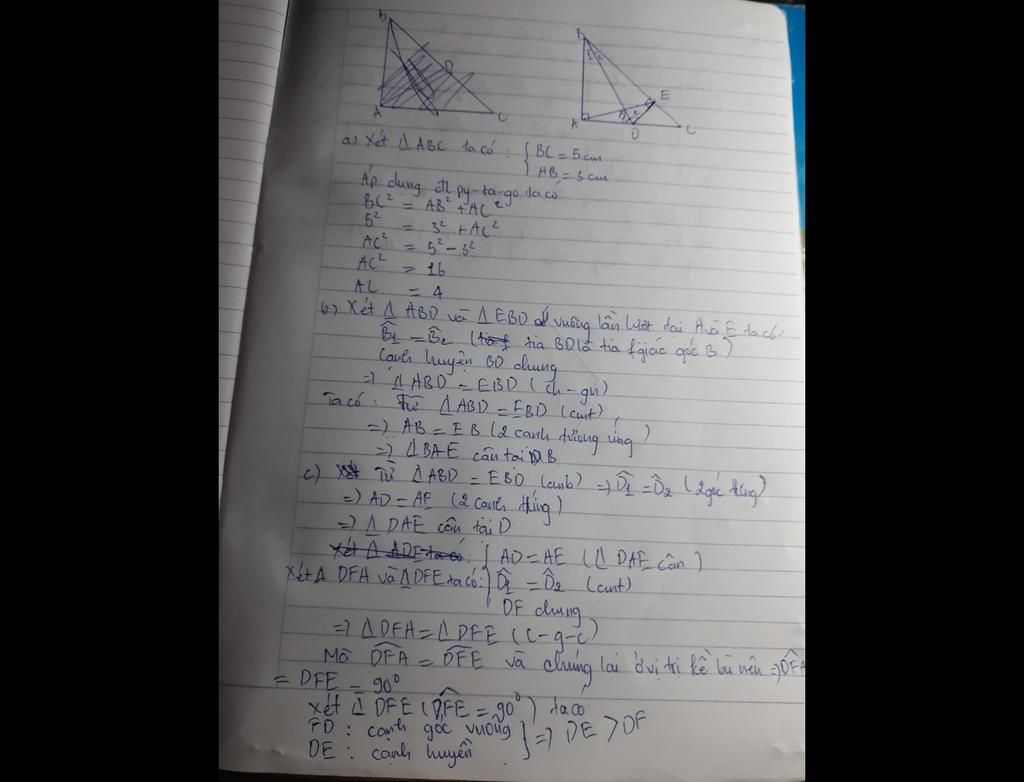 B
D
A
C
B
1 2
E
A
D
C
a) Xét Δ ABC ta có: { BC = 5 cm
AB = 3 cm
Áp dụng đl py-ta-go ta có
BC² = AB² + AC²
5² = 3² + AC²
AC² = 5² - 3²
AC² = 16
AC = 4
b) Xét Δ ABD và Δ EBD vuông lần lượt tại A và E ta có:
B̂₁ = B̂₂ (tia BD là tia fgiác góc B)
Cạnh huyền BD chung
=> Δ ABD = EBD (ch - gn)
Ta có: Từ Δ ABD = EBD (cmt)
=> AB = EB (2 cạnh tương ứng)
=> Δ BAE cân tại B
c) Từ Δ ABD = EBD (cmb) => D̂₁ = D̂₂ (2 góc tứng)
=> AD = AE (2 cạnh tứng)
=> Δ DAE cân tại D
Xét Δ ADE ta có: { AD = AE (Δ DAE cân)
Xét Δ DFA và Δ DFE ta có: D̂₁ = D̂₂ (cmt)
DF chung
=> Δ DFA = Δ DFE (c-g-c)
Mà DFA = DFE và chúng lại ở vị trí kề bù nên => DFA
= DFE = 90°
Xét Δ DFE (DFE = 90°) ta có
FD: cạnh góc vuông } => DE > DF
DE: cạnh huyền